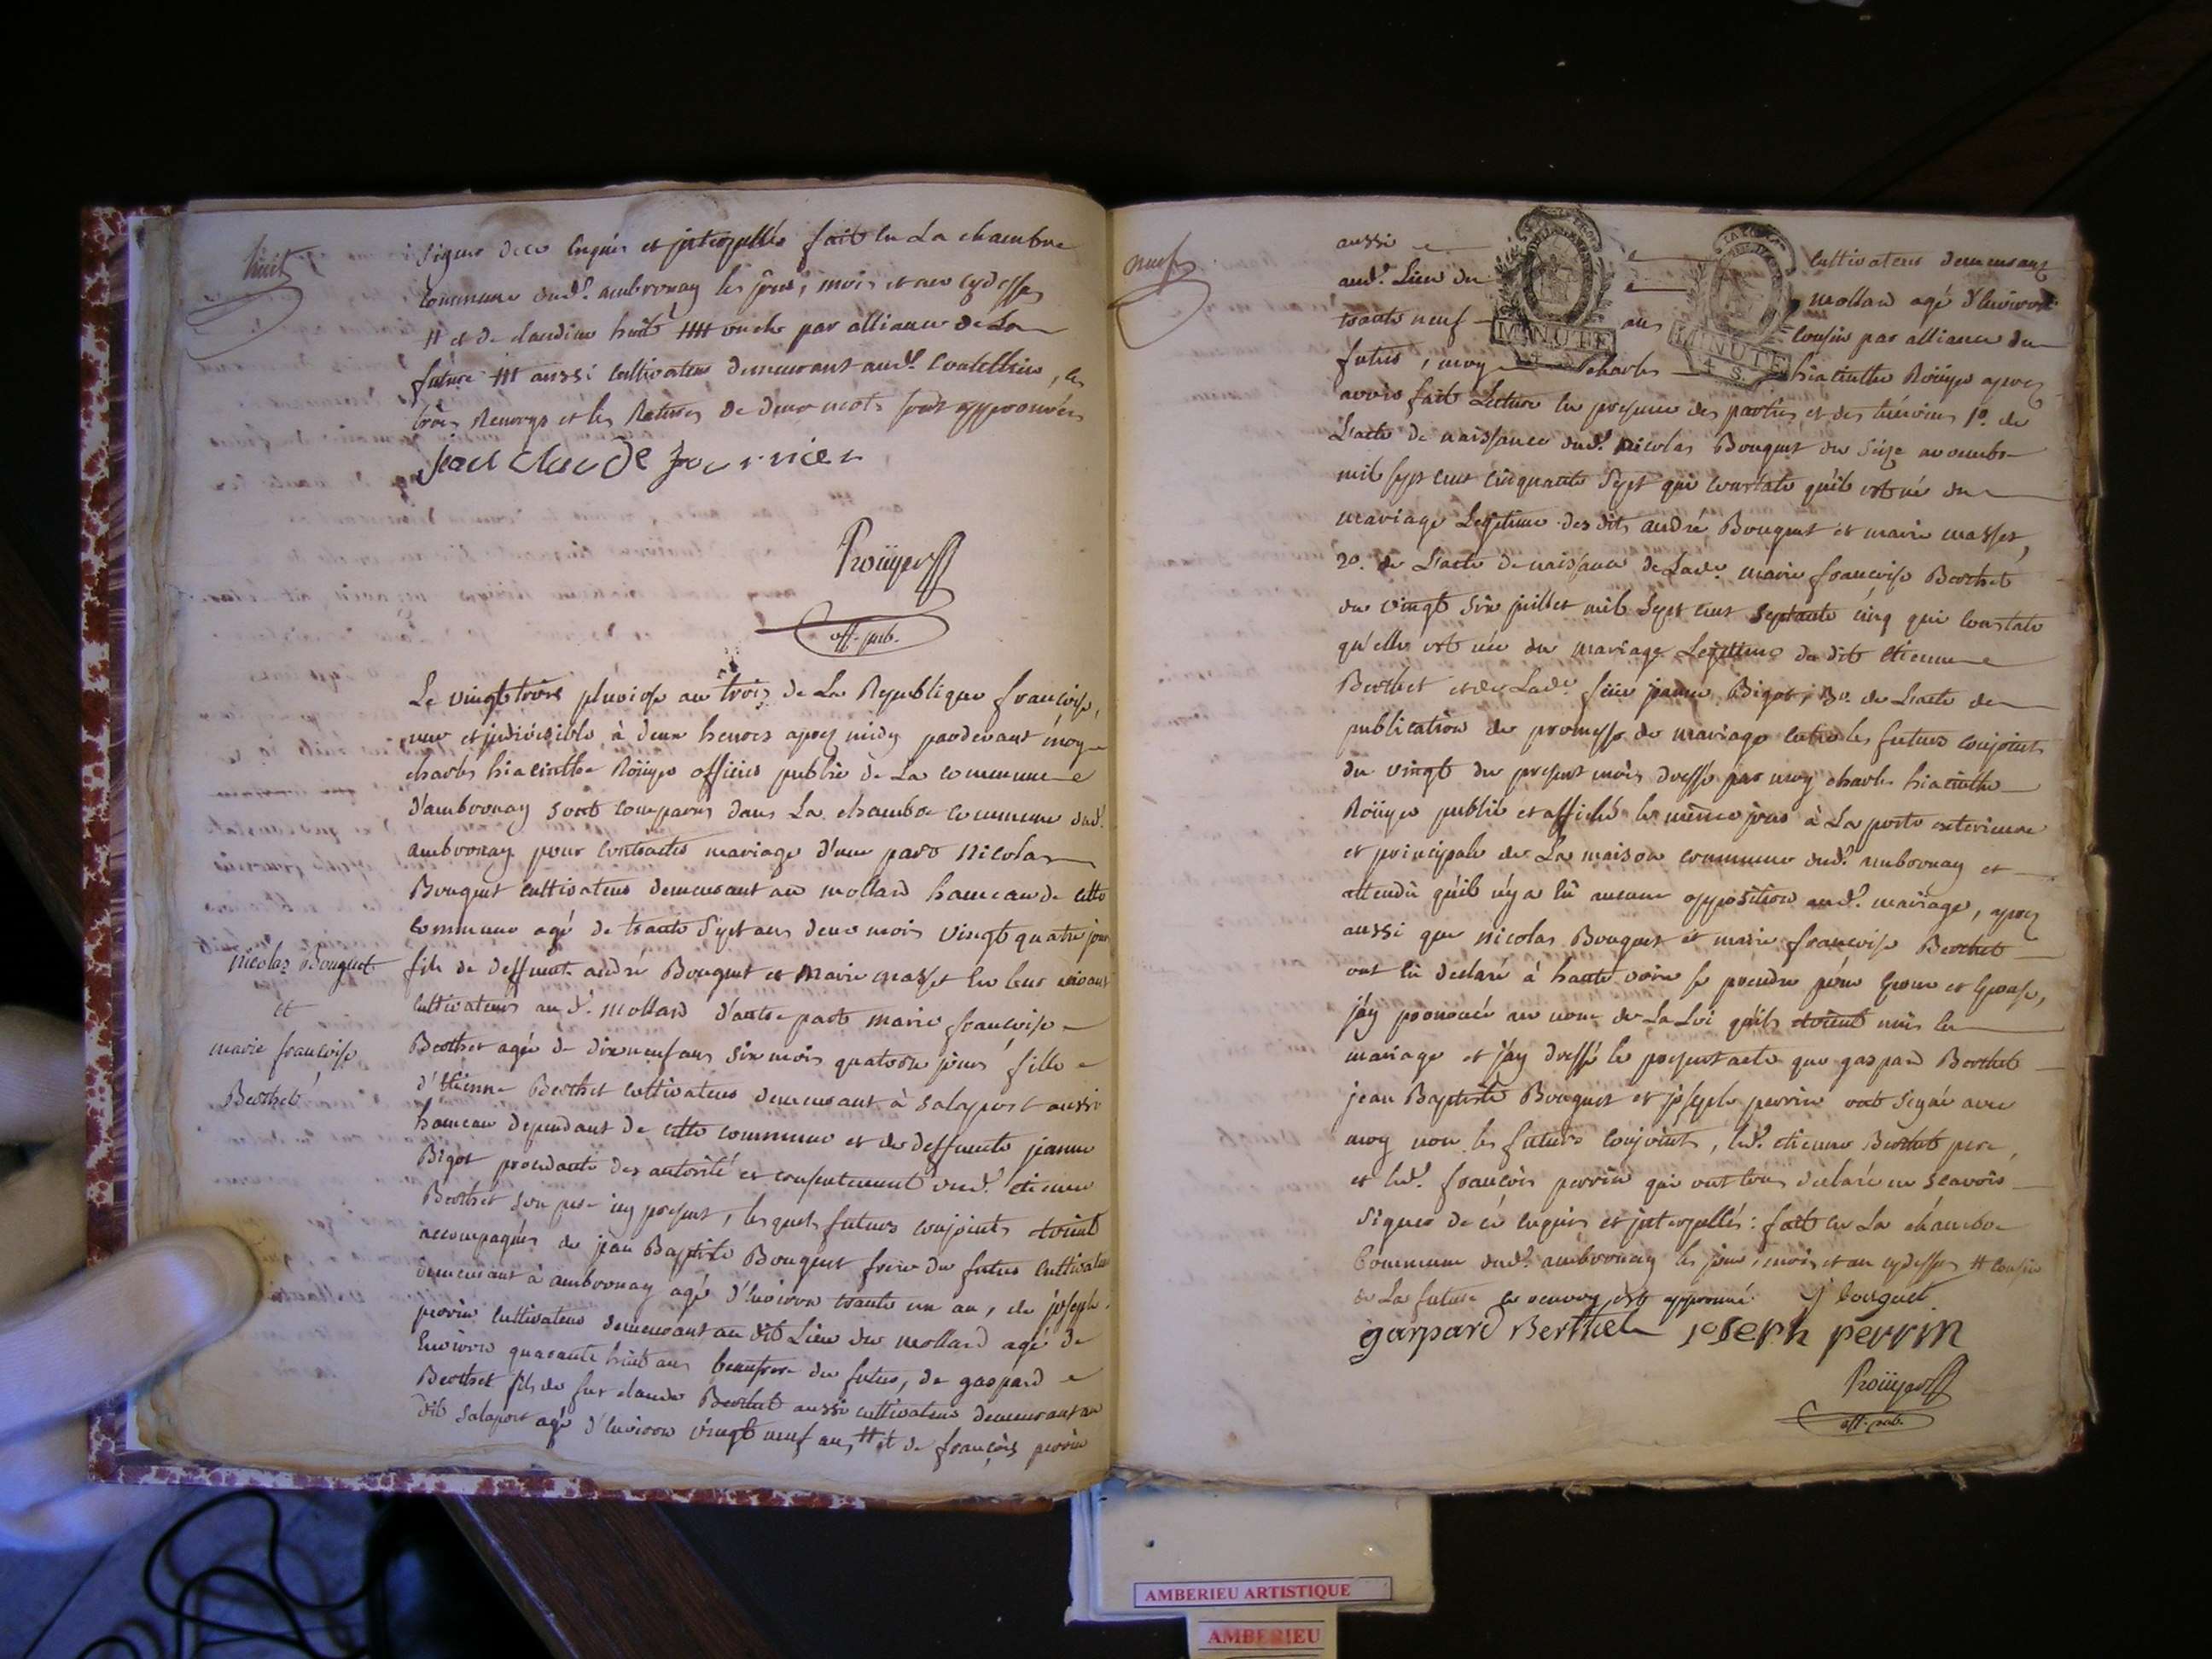 huit
signer de ce enquis et interpellés fait en la chambre
commune dud. ambronay les jour, mois et an cydessus
# et de claudine huit #### oncle par alliance de la
future ### aussi cultivateur demeurant aud.
trois renvoys et les ratures de deux mots sont approuvées
jean claude fournier
Roüyer
off. pub.
Le vingt trois pluviose an trois de La Republique francoise,
une et indivisible à deux heures apres midy pardevant moy
charles hiacinthe Roüyer officier public de La commune
d'ambronay sont comparus dans La chambre commune dud.
ambronay pour contracter mariage d'une part Nicolas
Bouquet cultivateur demeurant au mollard hameau de cette
commune agé de trante sept ans deux mois vingt quatre jours
nicolas Bouquet
et
marie francoise
Berthet
fils de deffunts andré Bouquet et Marie masset en leur vivant
cultivateurs aud. Mollard d'autre part Marie francoise
Berthet agée de dixneuf ans six mois quatorze jours fille
d'Etienne Berthet cultivateur demeurant à Salaport aussi
hameau dependant de cette commune et de deffunte jeanne
Bigot procedante des autorité et consentement dud. etienne
Berthet son pere icy present, lesquels futurs conjoints etoient
accompagnés de jean Baptiste Bouquet frere du futur cultivateur
demeurant à ambronay agé d'environ trante un an, de joseph
perrin cultivateur demeurant au dit Lieu du Mollard agé de
Environ quarante huit ans beaufrere du futur, de gaspard
Berthet fils de feu claude Berthet aussi cultivateur demeurant au
dit Salaport agé d'environ vingt neuf ans, # et de françois perrin
neuf
aussi cultivateur demeurant
aud. Lieu du mollard agé d'environ
trante neuf ans cousin par alliance du
futur, moy charles hiacinthe Roüyer apres
MINUTE
MINUTE
avoir fait Lecture en presence des parties et des témoins 1o. de
L'acte de naissance dud. Nicolas Bouquet du seize novembre
mil sept cent cinquante sept qui constate qu'il est né du
mariage Legitime desdits andré Bouquet et marie masset,
2o. de L'acte de naissance de Lade. marie francoise Berthet
du vingt six juillet mil sept cent septante cinq qui constate
qu'elle est née du mariage Legitime du dit etienne
Berthet et de Lade. feüe jeanne Bigot, 3o. de L'acte de
publication de promesse de mariage entre les futurs conjoints
du vingt du present mois dressé par moy charles hiacinthe
Roüyer publié et affiché le même jour à La porte exterieure
et principale de La maison commune dud. ambronay et
attendu qu'il n'y a eü aucune opposition aud. mariage, apres
aussi que Nicolas Bouquet et marie francoise Berthet
ont eü declaré à haute voix se prendre pour Epoux et Epouse,
j'ay prononcé au nom de La Loi qu'ils etoient unis en
mariage et j'ay dressé le present acte que gaspard Berthet
jean Baptiste Bouquet et joseph perrin ont signé avec
moy non les futurs conjoints, led. etienne Berthet pere,
et led. françois perrin qui ont tous declaré ne sçavoir
signer de ce enquis et interpellés : fait en La chambre
Commune dud. ambronay les jour, mois et an cydessus # cousin
de La future ce renvoy est approuvé. j bouquet
gaspard Berthet joseph perrin
Roüyer
off. pub.
AMBERIEU ARTISTIQUE
AMBERIEU